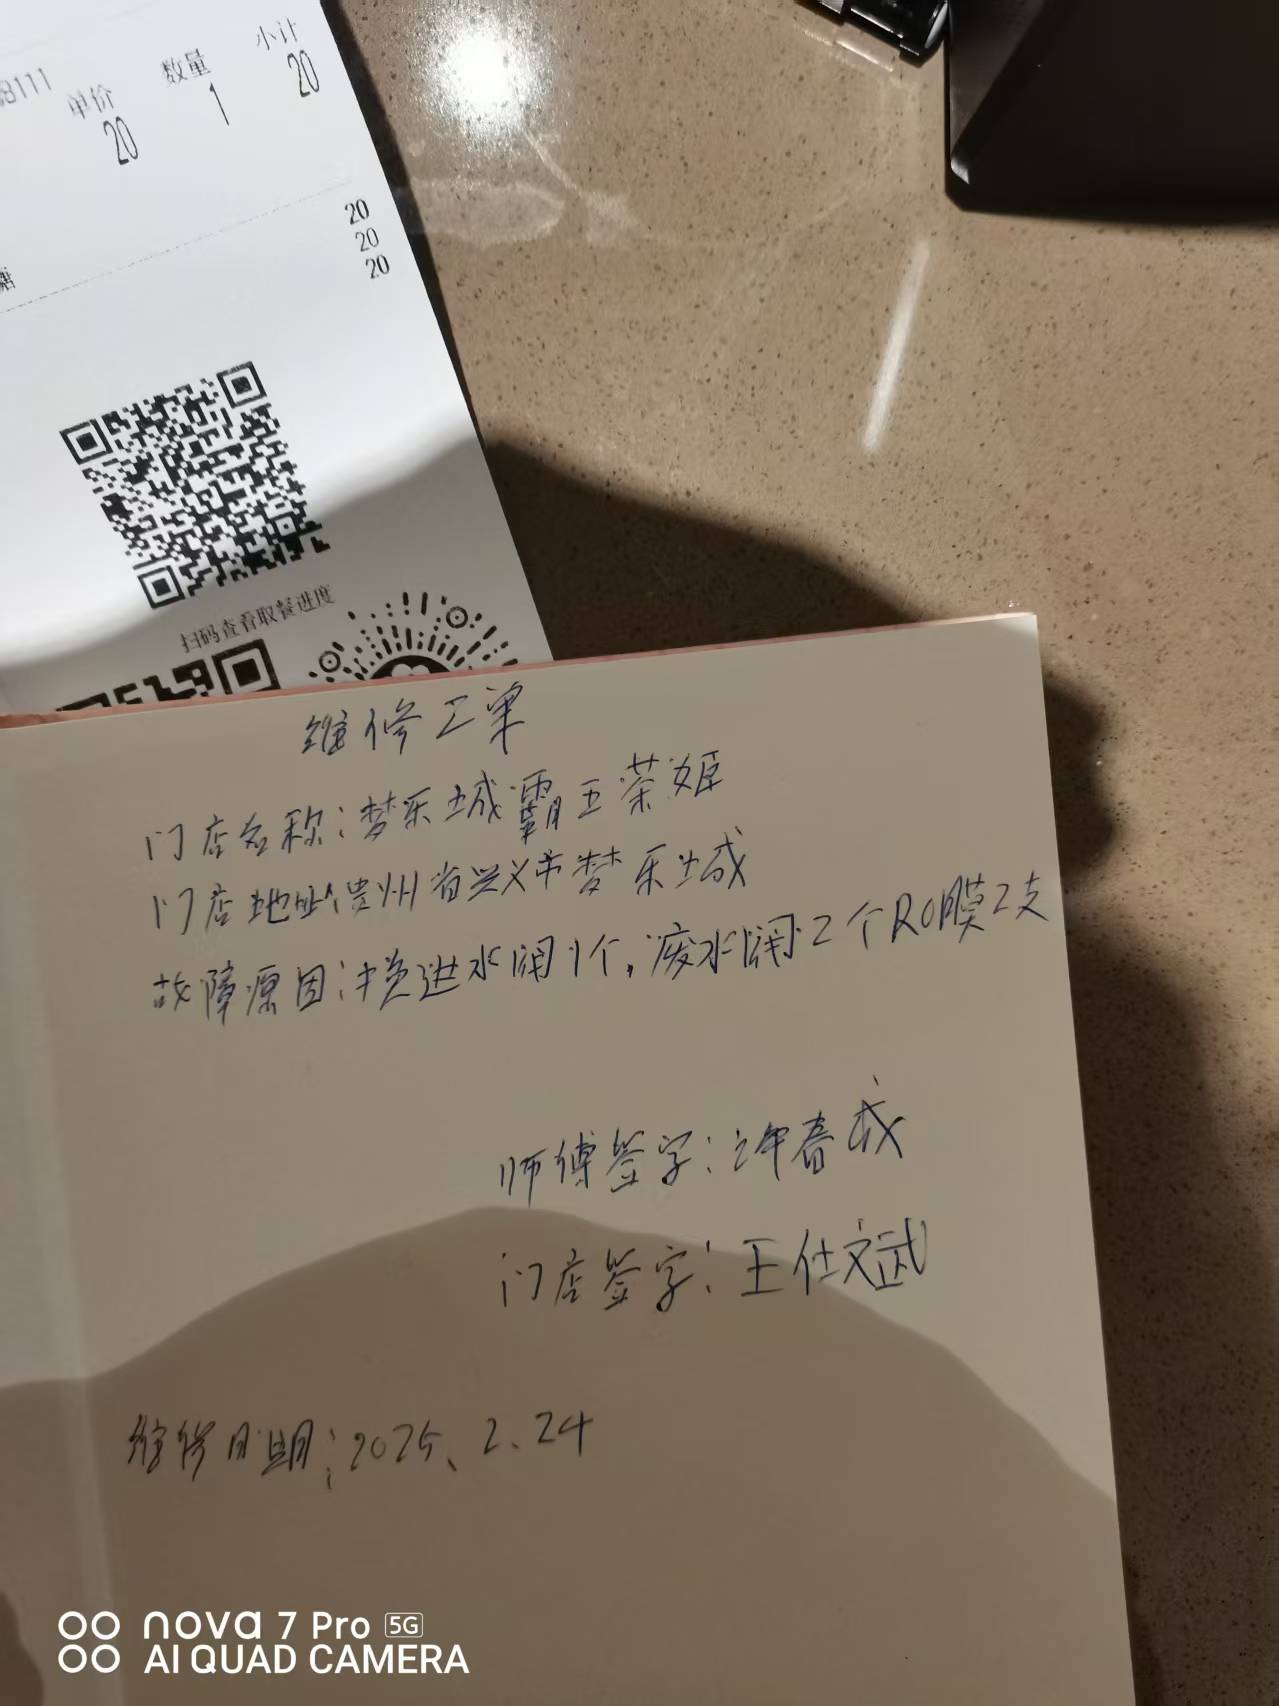 8111
单价 数量 小计
20 1 20
20
20
20
扫码查看取餐进度
维修工单
门店名称:梦乐城霸王茶姬
门店地址:贵州省兴义市梦乐城
故障原因:换进水阀1个,废水阀2个RO膜2支
师傅签字:许春成
门店签字:王仕文武
维修日期:2025、2、24
nova 7 Pro 5G
AI QUAD CAMERA